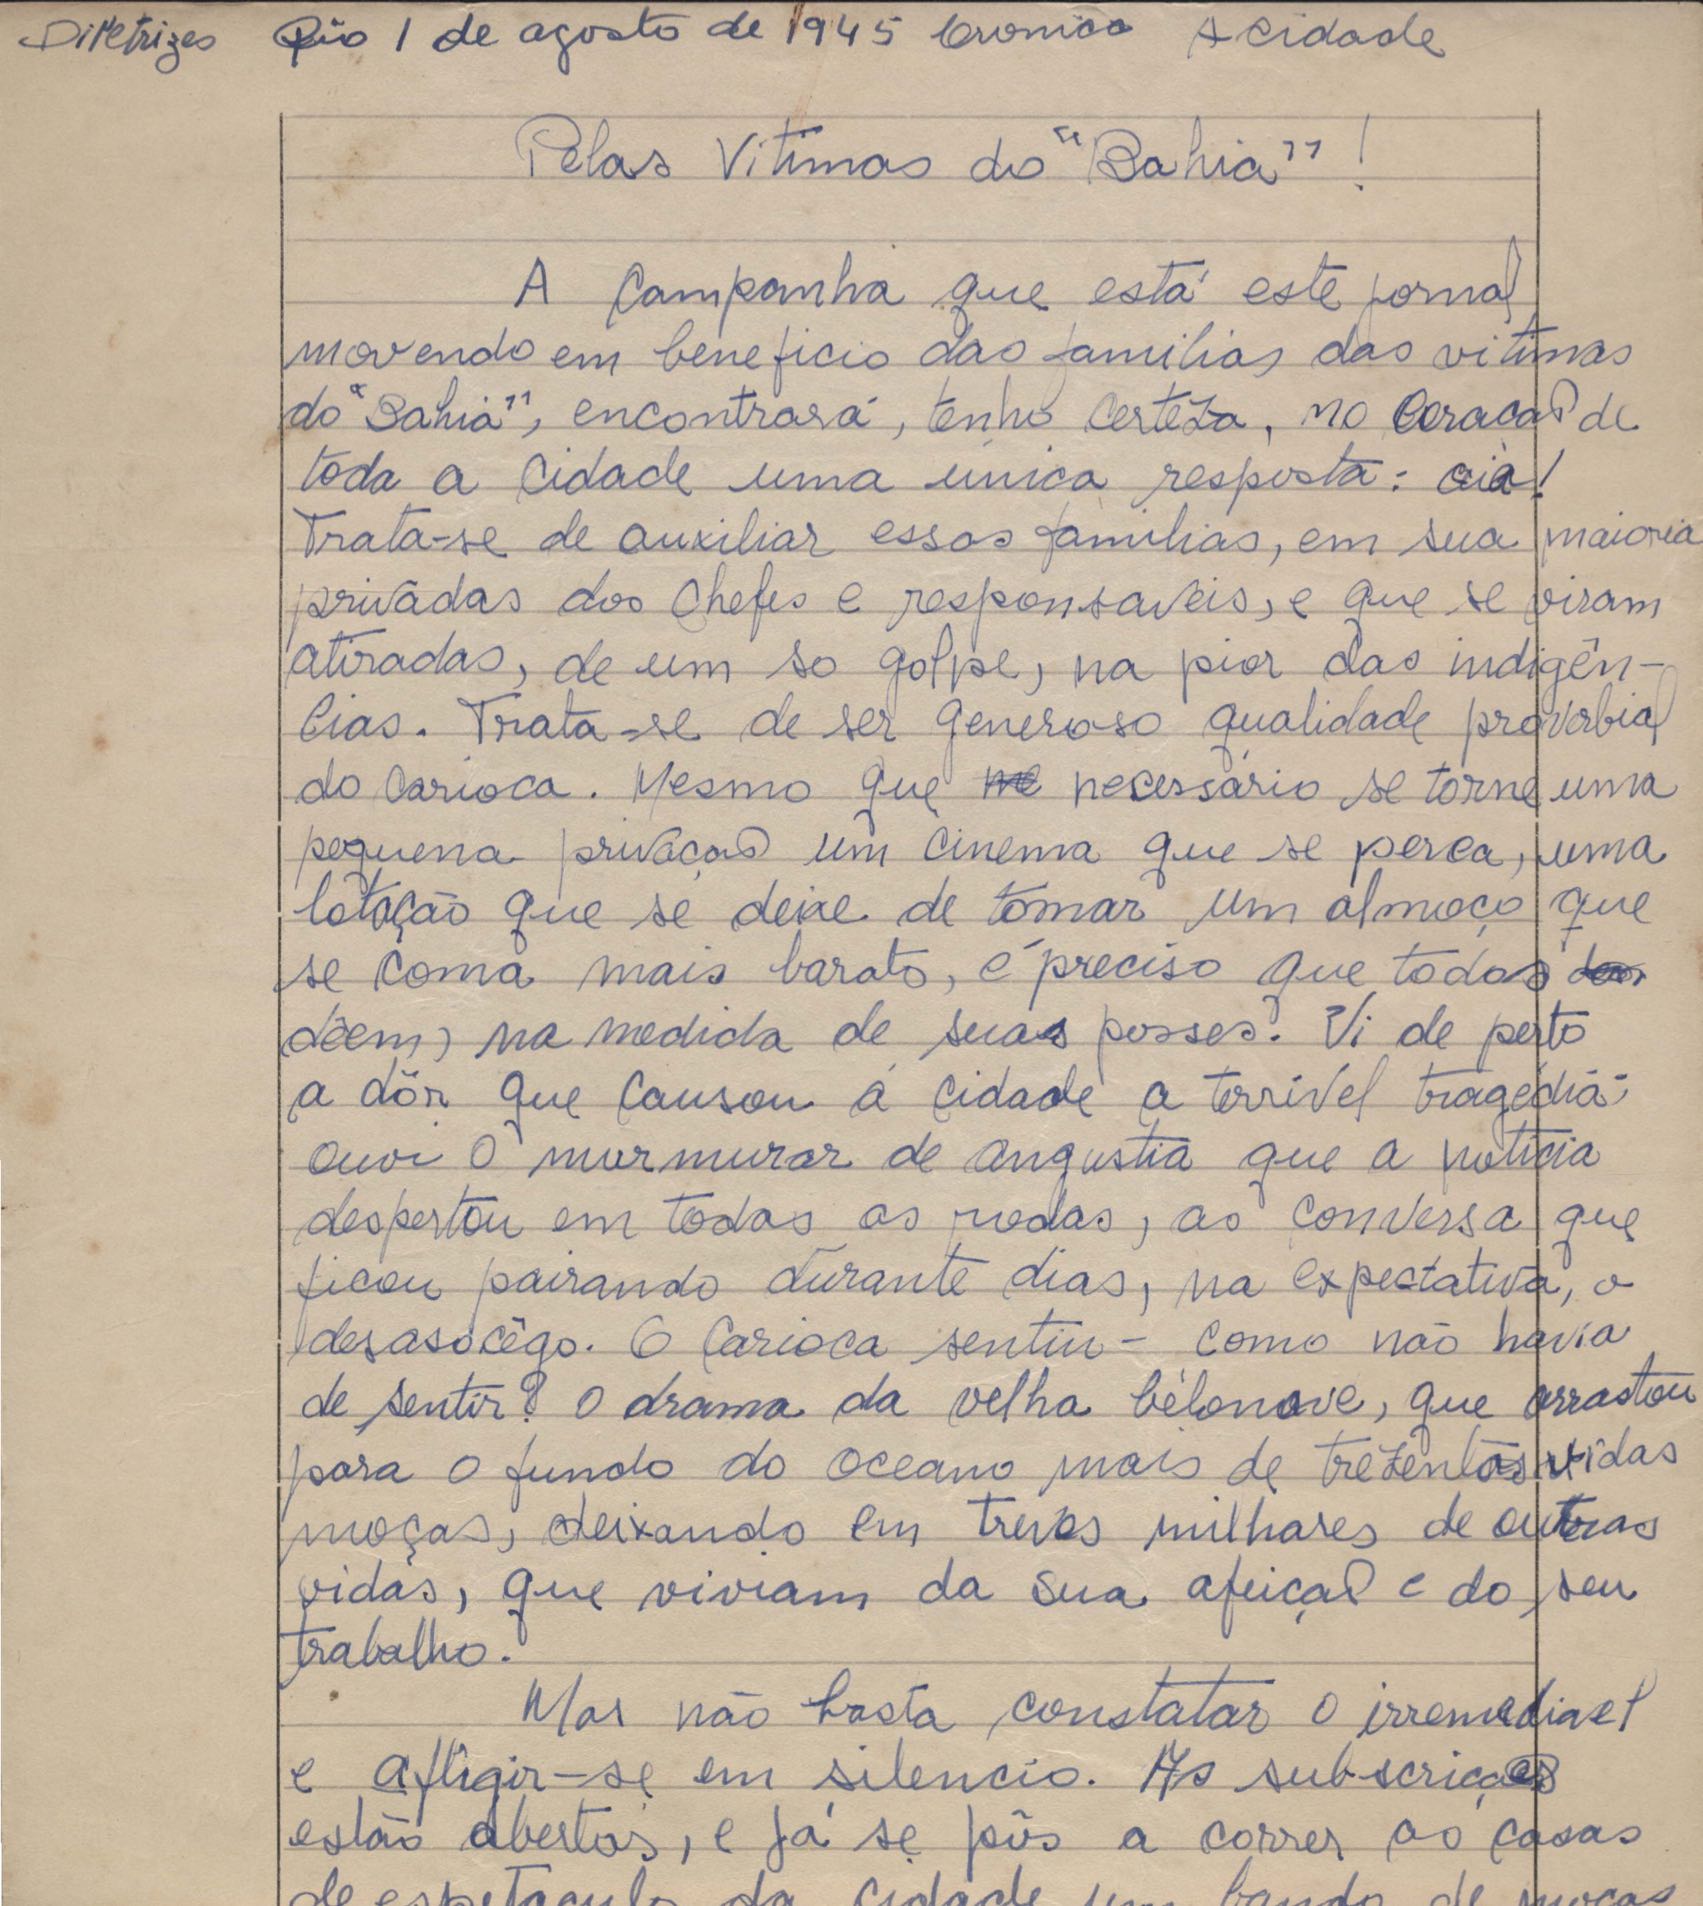 Diretrizes Rio 1 de agosto de 1945 Cronica A cidade
Pelas Vitimas do "Bahia"!
A Campanha que está este jornal
movendo em beneficio das familias das vitimas
do "Bahia", encontrará, tenho certeza, no coração de
toda a cidade uma única resposta:
Trata-se de auxiliar essas familias, em sua maioria
privadas dos Chefes e responsaveis, e que se viram
atiradas, de um so golpe, na pior das indigên-
cias. Trata-se de ser generoso qualidade proverbial
do carioca. Mesmo que necessário se torne uma
pequena privação um cinema que se perca, uma
lotação que se deixe de tomar um almoço que
se coma mais barato, é preciso que todos
dêem, na medida de suas posses. Vi de perto
a dôr que causou á cidade a terrível tragédia;
ouvi o murmurar de angustia que a noticia
despertou em todas as rodas, as conversa que
ficou pairando durante dias, na expectativa, o
desasocêgo. O Carioca sentiu - como não havia
de sentir? o drama da velha belonave, que arrastou
para o fundo do oceano mais de trezentas vidas
moças, deixando em treves milhares de outras
vidas, que viviam da sua afeição e do seu
trabalho.
Mas não basta constatar o irremediavel
e afligir-se em silencio. As subscrições
estão abertas, e já se pôs a correr as casas
de espetaculo da cidade um bando de moças